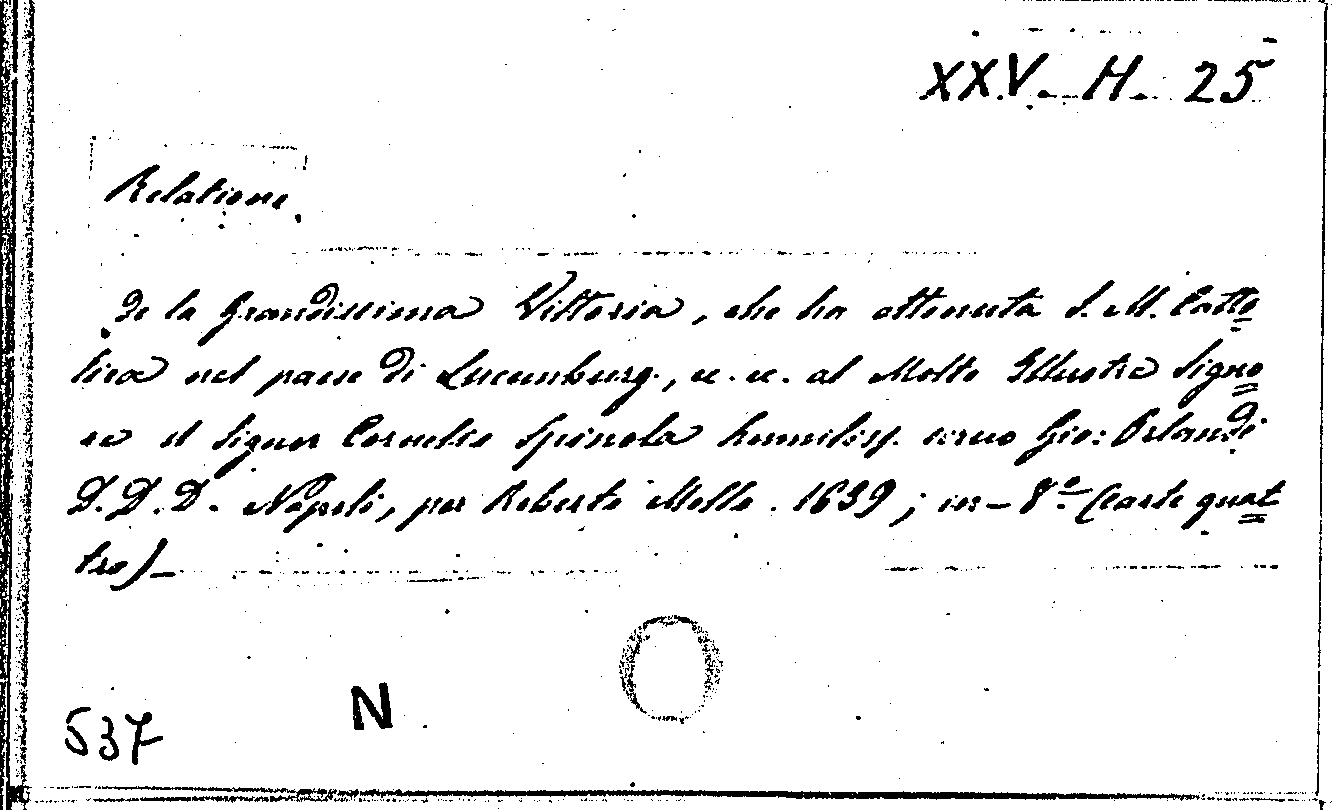 XXV. H. 25
Relatione
de la Grandissima Vittoria, che ha ottenuta S. M. Catto
lica nel paese di Lucemburg., ec. ec. al Molto Illustre Signo
re il Signor Cornelio Spinola humiliss. servo Gio: Orlandi
D. D. D. Napoli, per Roberto Mollo. 1639; in-8º (Carte quat
tro)_
537 N